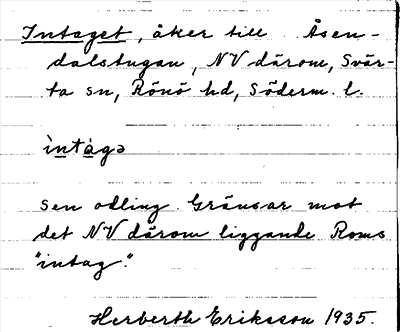 Intaget, åker till Åsen-
dalstugan, NV därom, Svär-
ta sn, Rönö hd, Söderm. l.
ìntágə
sen odling. Gränsar mot
det NV därom liggande Roms
"intag".
Herberth Eriksson 1935.